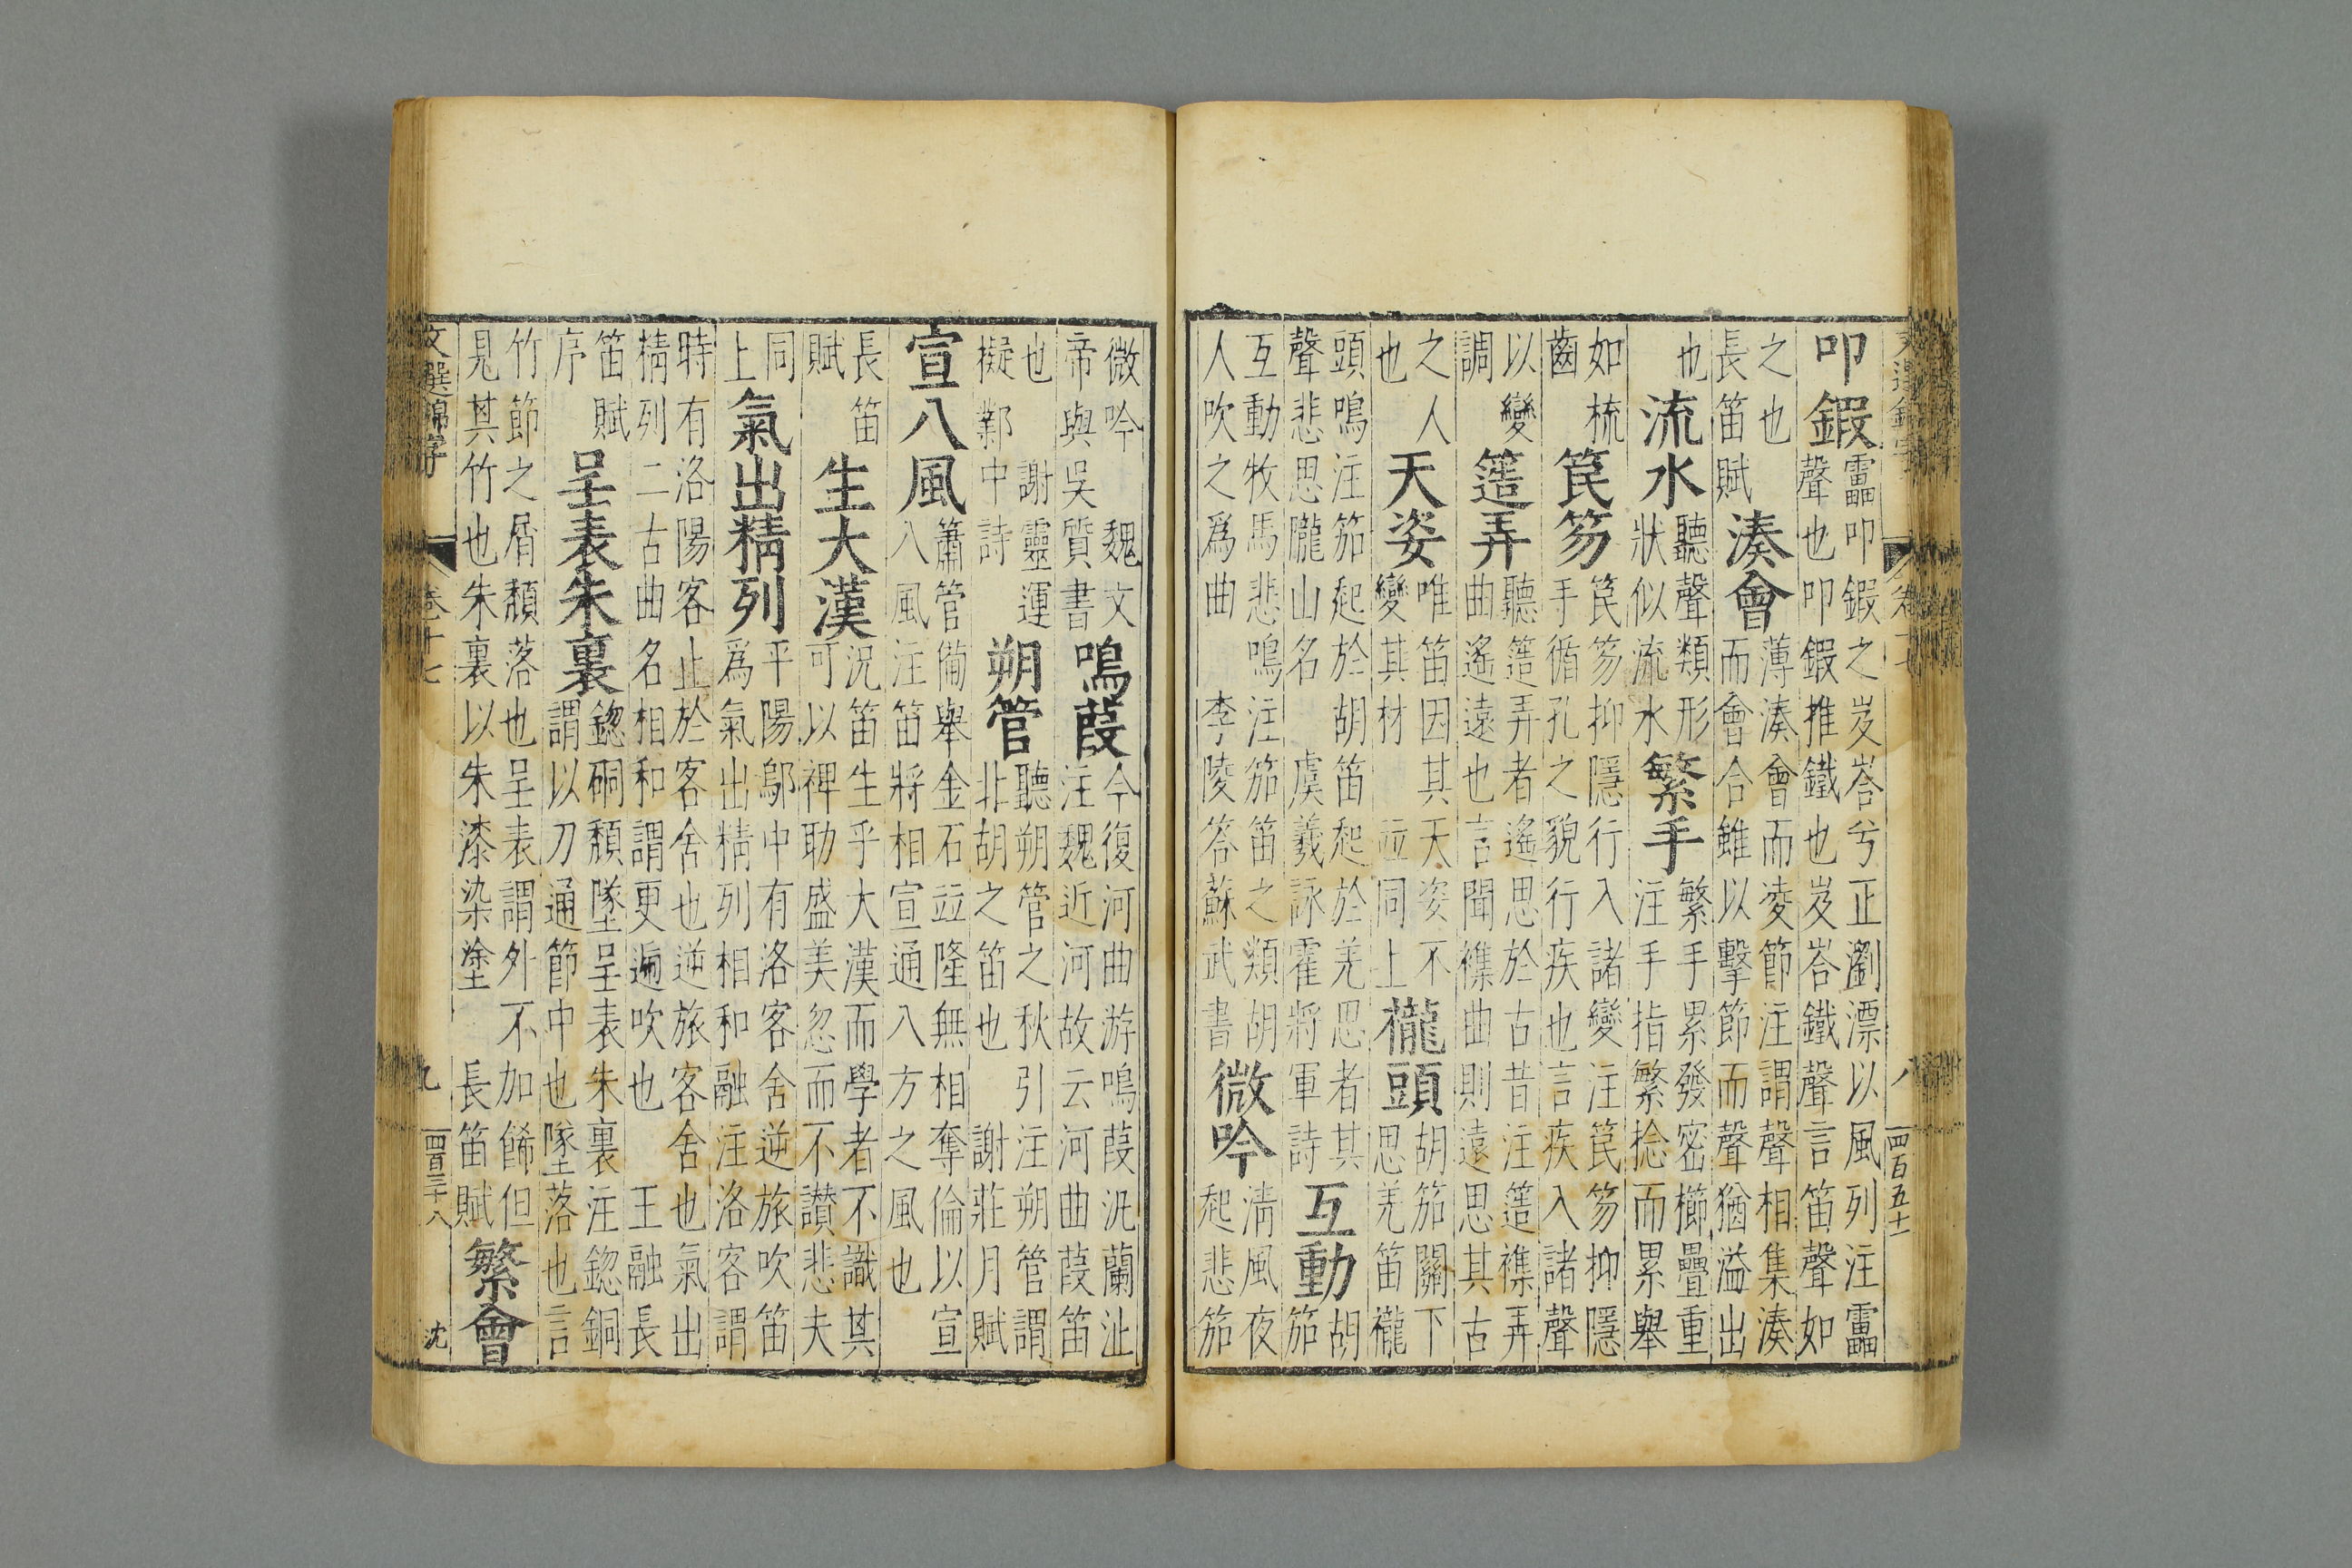 叩鍜
靁叩鍜之岌峇兮正瀏漂以風列注靁
聲也叩鍜推鐵也岌峇鐵聲言笛聲如
之也
長笛賦
湊會
薄湊會而凌節注謂聲相集湊
而會合雖以擊節而聲猶溢出
也
流水
聽聲類形
狀似流水
繁手
繁手累發密櫛疊重
注手指繁捻而累舉
如梳
齒
笢笏
笢笏抑隱行入諸變注笢笏抑隱
手循孔之貌行疾也言疾入諸聲
以變
調
簉弄
聽簉弄者遙思於古昔注簉襍弄
曲遙遠也言聞襍曲則遠思其古
之人
也
天姿
唯笛因其天姿不
變其材 竝同上
櫳頭
胡笳關下
思羌笛櫳
頭鳴注笳起於胡笛起於羌思者其
聲悲思隴山名 虞羲詠霍將軍詩
互動
胡
笳
互動牧馬悲鳴注笳笛之類胡
人吹之爲曲 李陵答蘇武書
微吟
清風夜
起悲笳
卷十七 八 四百五十一
微吟 魏文
帝與吳質書
鳴葭
今復河曲游鳴葭汎蘭沚
注魏近河故云河曲葭笛
也 謝靈運
擬鄴中詩
朔管
聽朔管之秋引注朔管謂
北胡之笛也 謝莊月賦
宣八風
簫管備舉金石竝隆無相奪倫以宣
八風注笛將相宣通八方之風也
長笛
賦
生大漢
況笛生乎大漢而學者不識其
可以裨助盛美忽而不讚悲夫
同
上
氣出精列
平陽鄔中有洛客舍逆旅吹笛
爲氣出精列相和融注洛客謂
時有洛陽客止於客舍也逆旅客舍也氣出
精列二古曲名相和謂更遍吹也 王融長
笛賦
序
呈表朱裏
鍃硐頹墜呈表朱裏注鍃銅
謂以刀通節中也墜落也言
竹節之屑頹落也呈表謂外不加餙但
見其竹也朱裏以朱漆染塗 長笛賦
繁會
文選錦字 卷十七 九 四百三十八